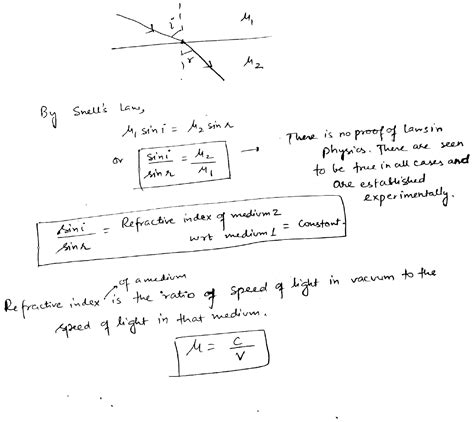 i
μ₁
r
μ₂
By Snell's Law,
μ₁ sin i = μ₂ sin r
or sin i / sin r = μ₂ / μ₁ → There is no proof of laws in
physics. There are seen
to be true in all cases and
are established
experimentally.
sin i / sin r = Refractive index of medium 2
wrt medium 1 = constant.
of a medium
Refractive index is the ratio of speed of light in vacuum to the
speed of light in that medium.
μ = c / v